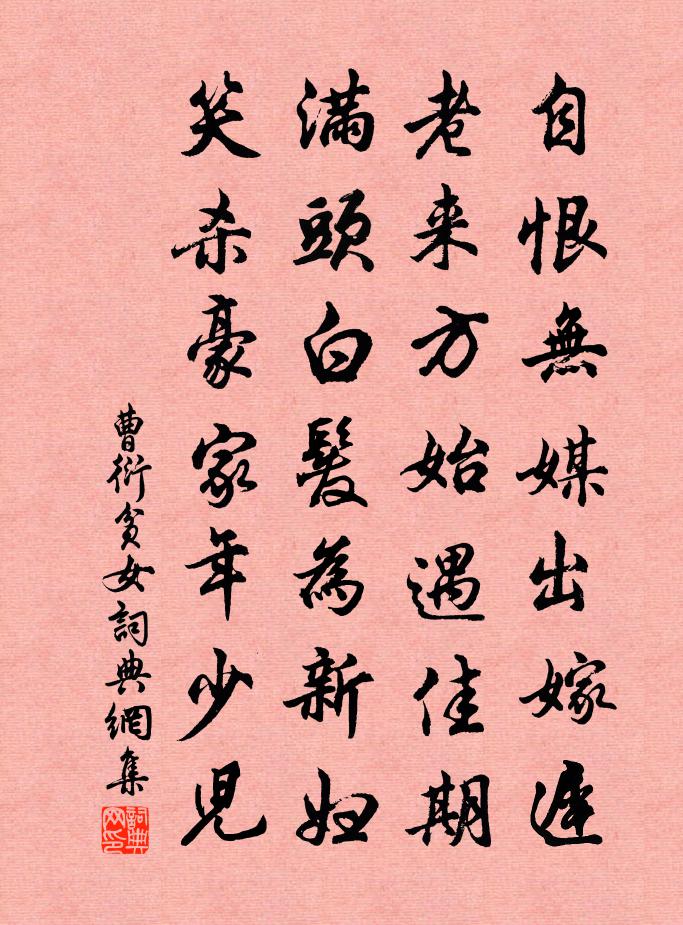 自恨無媒出嫁遲
老来方始遇佳期
滿頭白髮為新妇
笑杀豪家年少児
曹衍贫女詞典網集
詞典网印